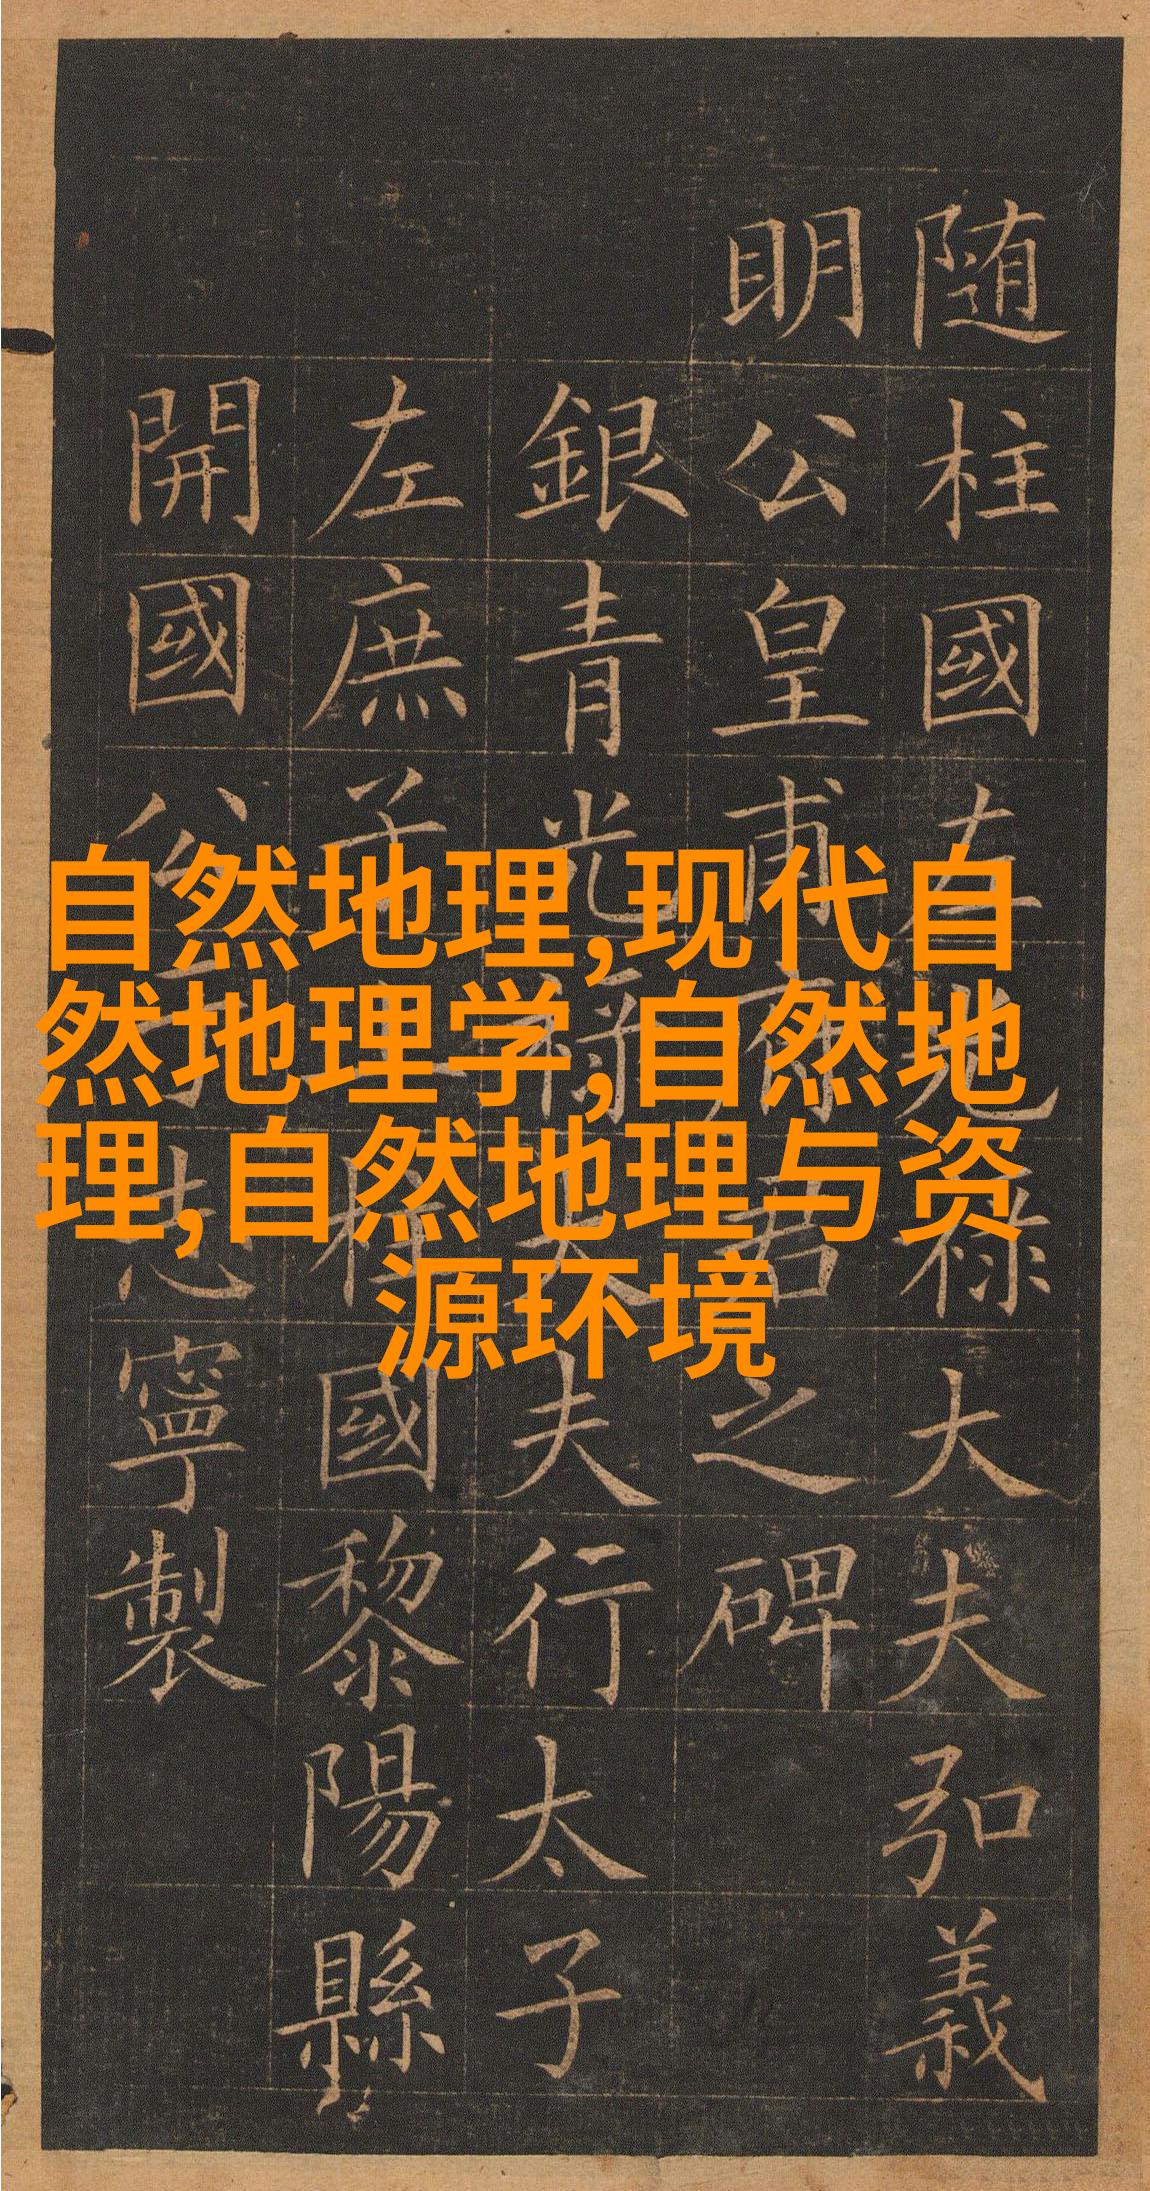 自然地理,现代自
然地理学,自然地
理,自然地理与资
源环境
随柱國左光禄大夫弘義
明公皇甫府君之碑
銀青光禄大夫行太子
左庶子上柱國黎陽縣
開國公于志寧製